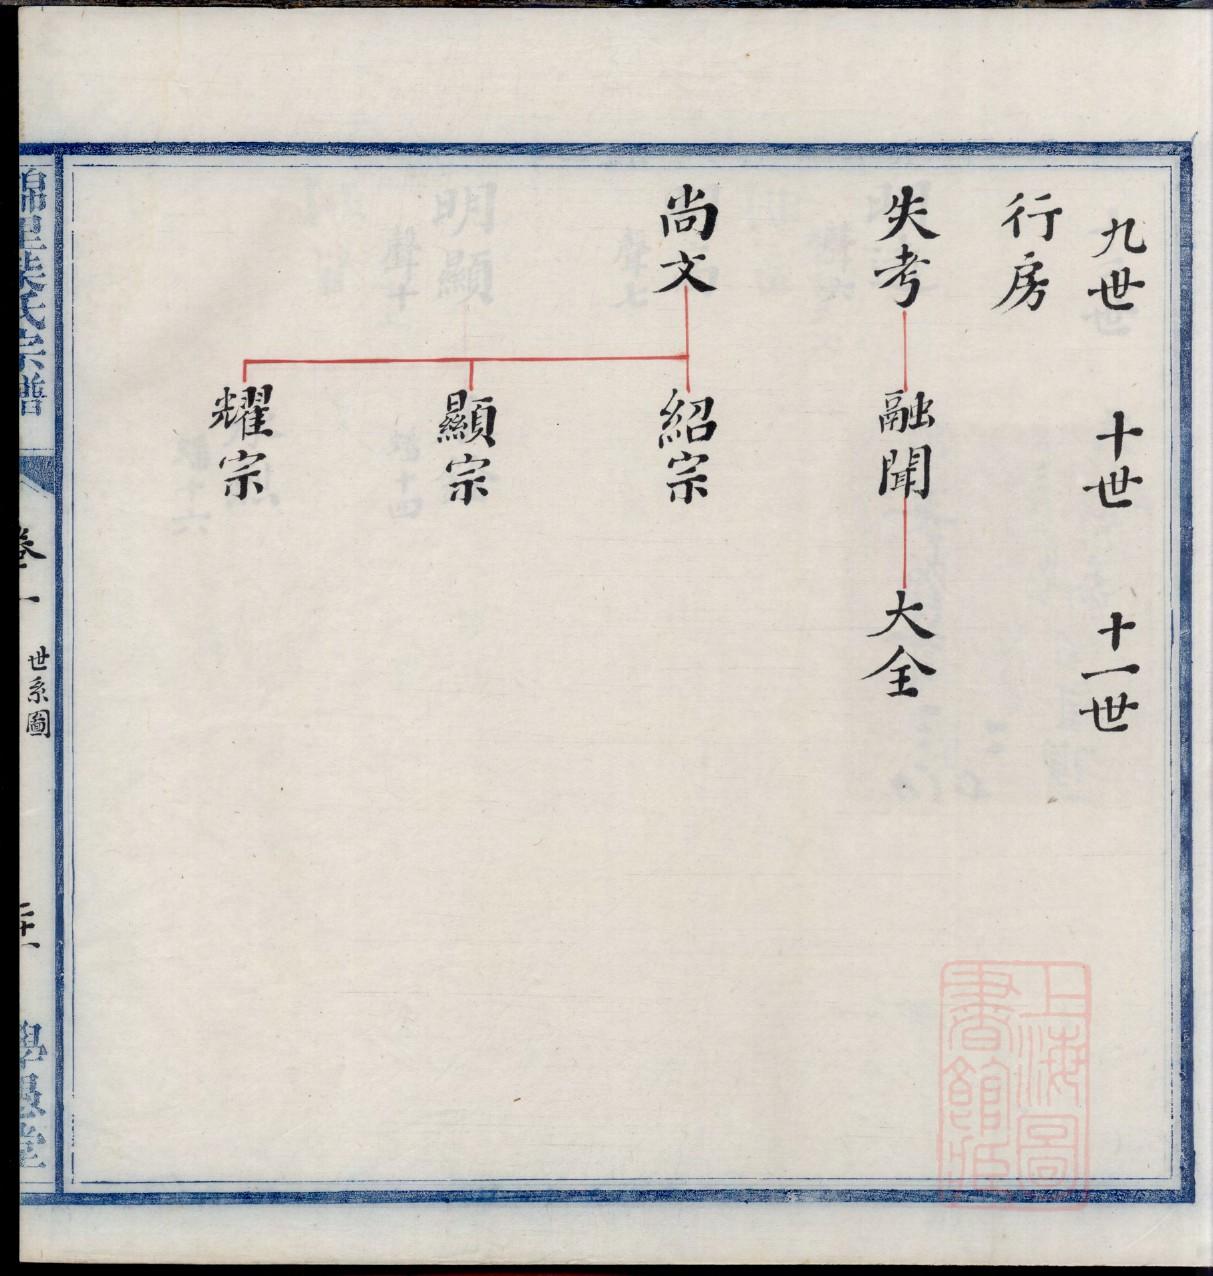 九世
十世
十一世
行房
失考
融聞
大全
尚文
紹宗
顯宗
耀宗
葉氏宗譜
卷一
世系圖
上海圖
書館藏